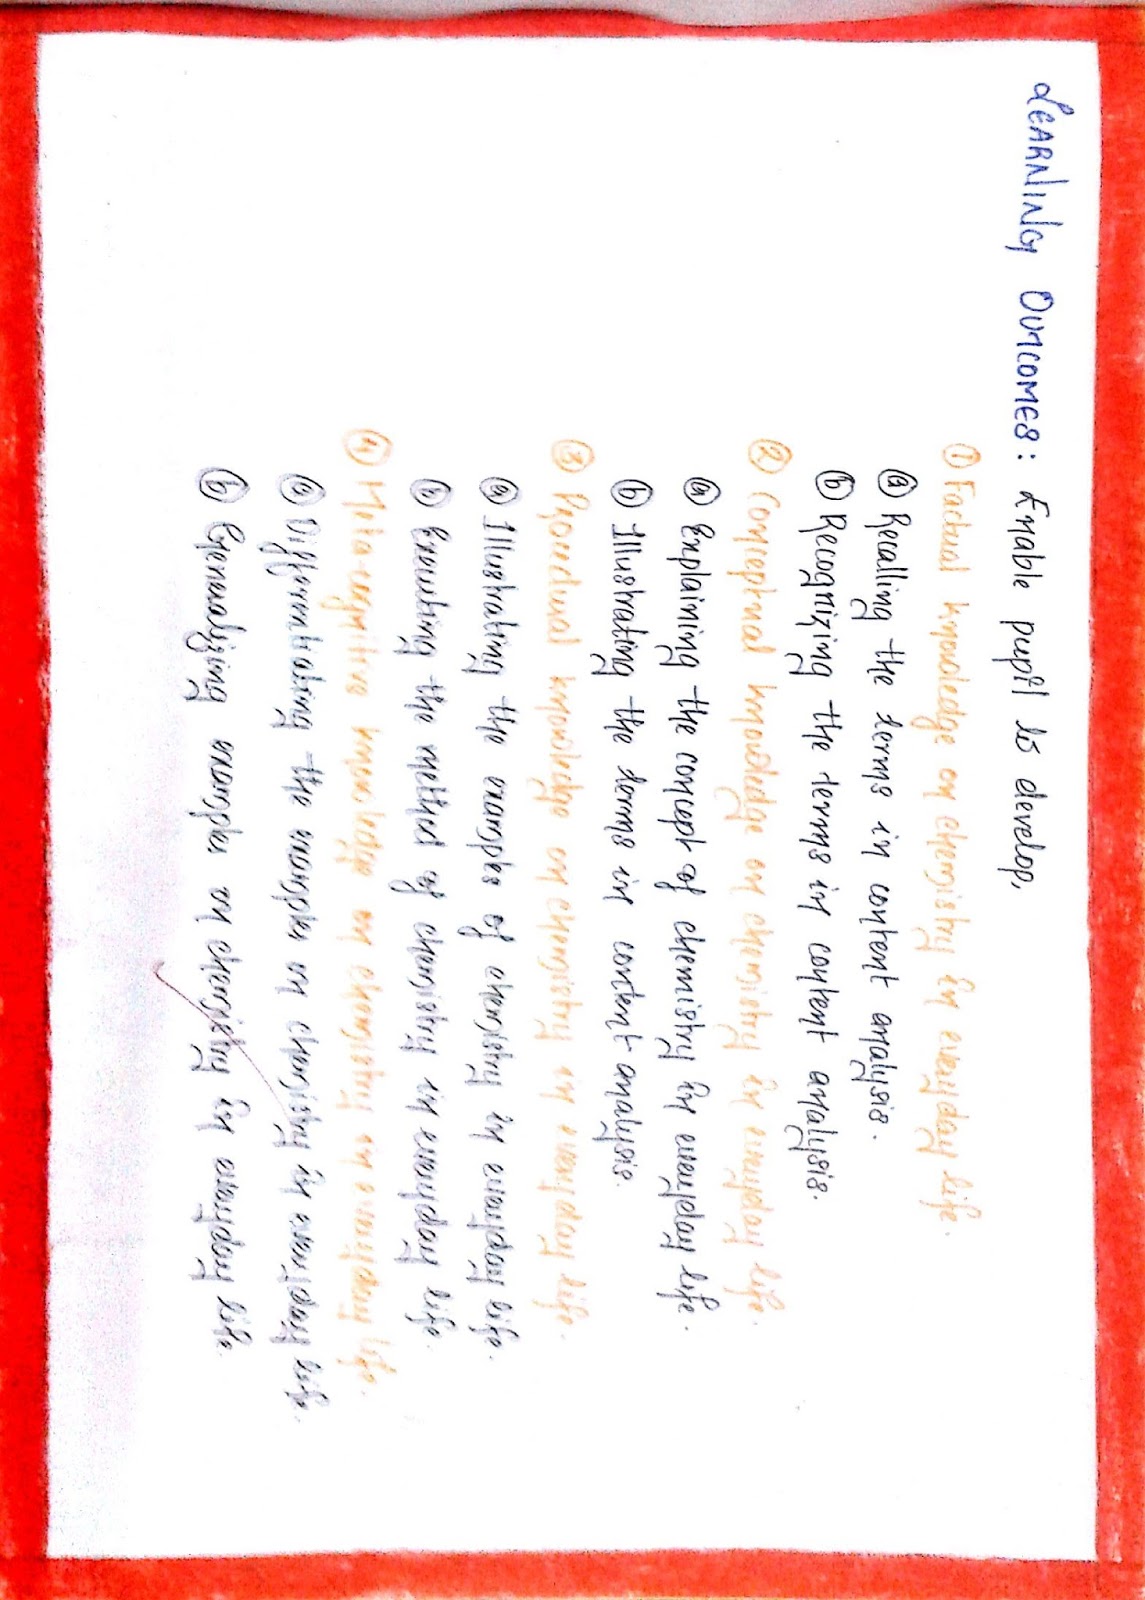 LEARNING OUTCOMES: Enable pupil to develop,
① Factual knowledge on chemistry in everyday life.
ⓐ Recalling the terms in content analysis.
ⓑ Recognizing the terms in content analysis.
② Conceptual knowledge on chemistry in everyday life.
ⓐ Explaining the concept of chemistry in everyday life.
ⓑ Illustrating the terms in content analysis.
③ Procedural knowledge on chemistry in everyday life.
ⓐ Illustrating the examples of chemistry in everyday life.
ⓑ Executing the method of chemistry in everyday life.
④ Meta-cognitive knowledge on chemistry in everyday life.
ⓐ Differentiating the examples on chemistry in everyday life.
ⓑ Generalizing examples on chemistry in everyday life.